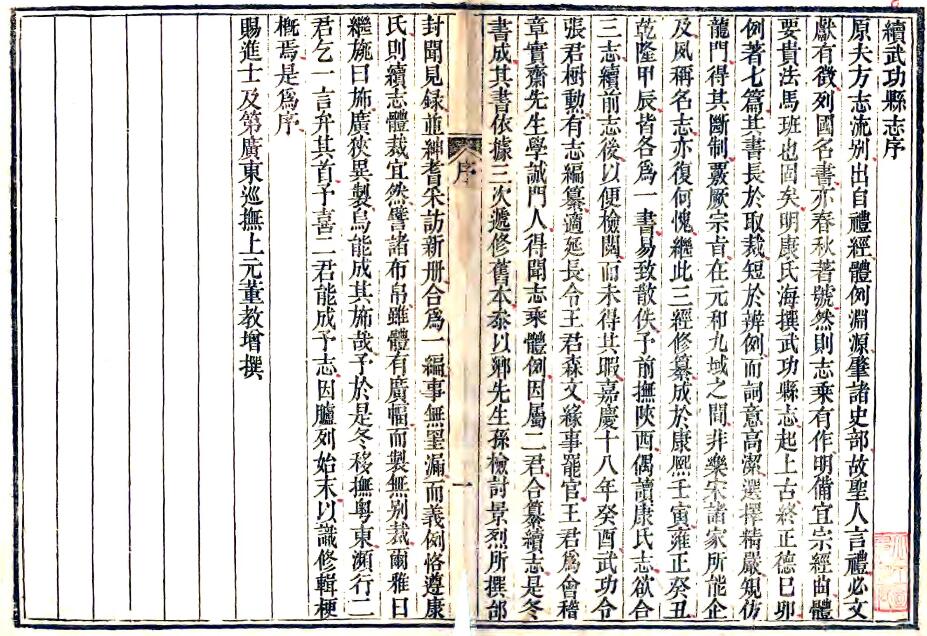 續武功縣志序
原夫方志流别出自禮經體例淵源肇諸史部故聖人言禮必文
獻有徵列國名書亦春秋著號然則志乘有作明備宜宗經曲體
要貴法馬班也固矣明康氏海撰武功縣志起上古終正德巳卯
例著七篇其書長於取裁短於辨例而詞意高潔選擇精嚴䂓仿
龍門得其斷制覈厥宗㫖在元和九域之間非樂宋諸家所能企
及夙稱名志亦復何愧繼此三經修纂成於康熙壬寅雍正癸丑
乾隆甲辰皆各爲一書易致散佚予前撫陝西偶讀康氏志欲合
三志續前志後以便檢閱而未得其暇嘉慶十八年癸酉武功令
張君樹勳有志編纂適延長令王君森文緣事罷官王君爲會稽
章實齋先生學誠門人得聞志乘體例因屬二君合纂續志是冬
書成其書依據三次遞修舊本叅以鄉先生孫檢討景烈所撰郃
序
一
封聞見録並紳耆采訪新册合爲一編事無罣漏而義例恪遵康
氏則續志體裁宜然譬諸布帛雖體有廣幅而製無别裁爾雅曰
繼施曰旆廣狹異製烏能成其旆哉予於是冬移撫粤東瀕行二
君乞一言弁其首予喜二君能成予志因臚列始末以識修輯梗
槪焉是爲序
賜進士及第廣東巡撫上元董教增撰